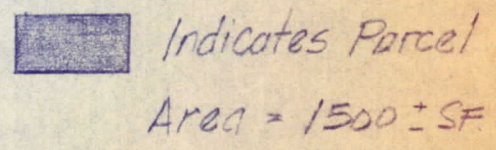 Indicates Parcel
Area = 1500 ± SF